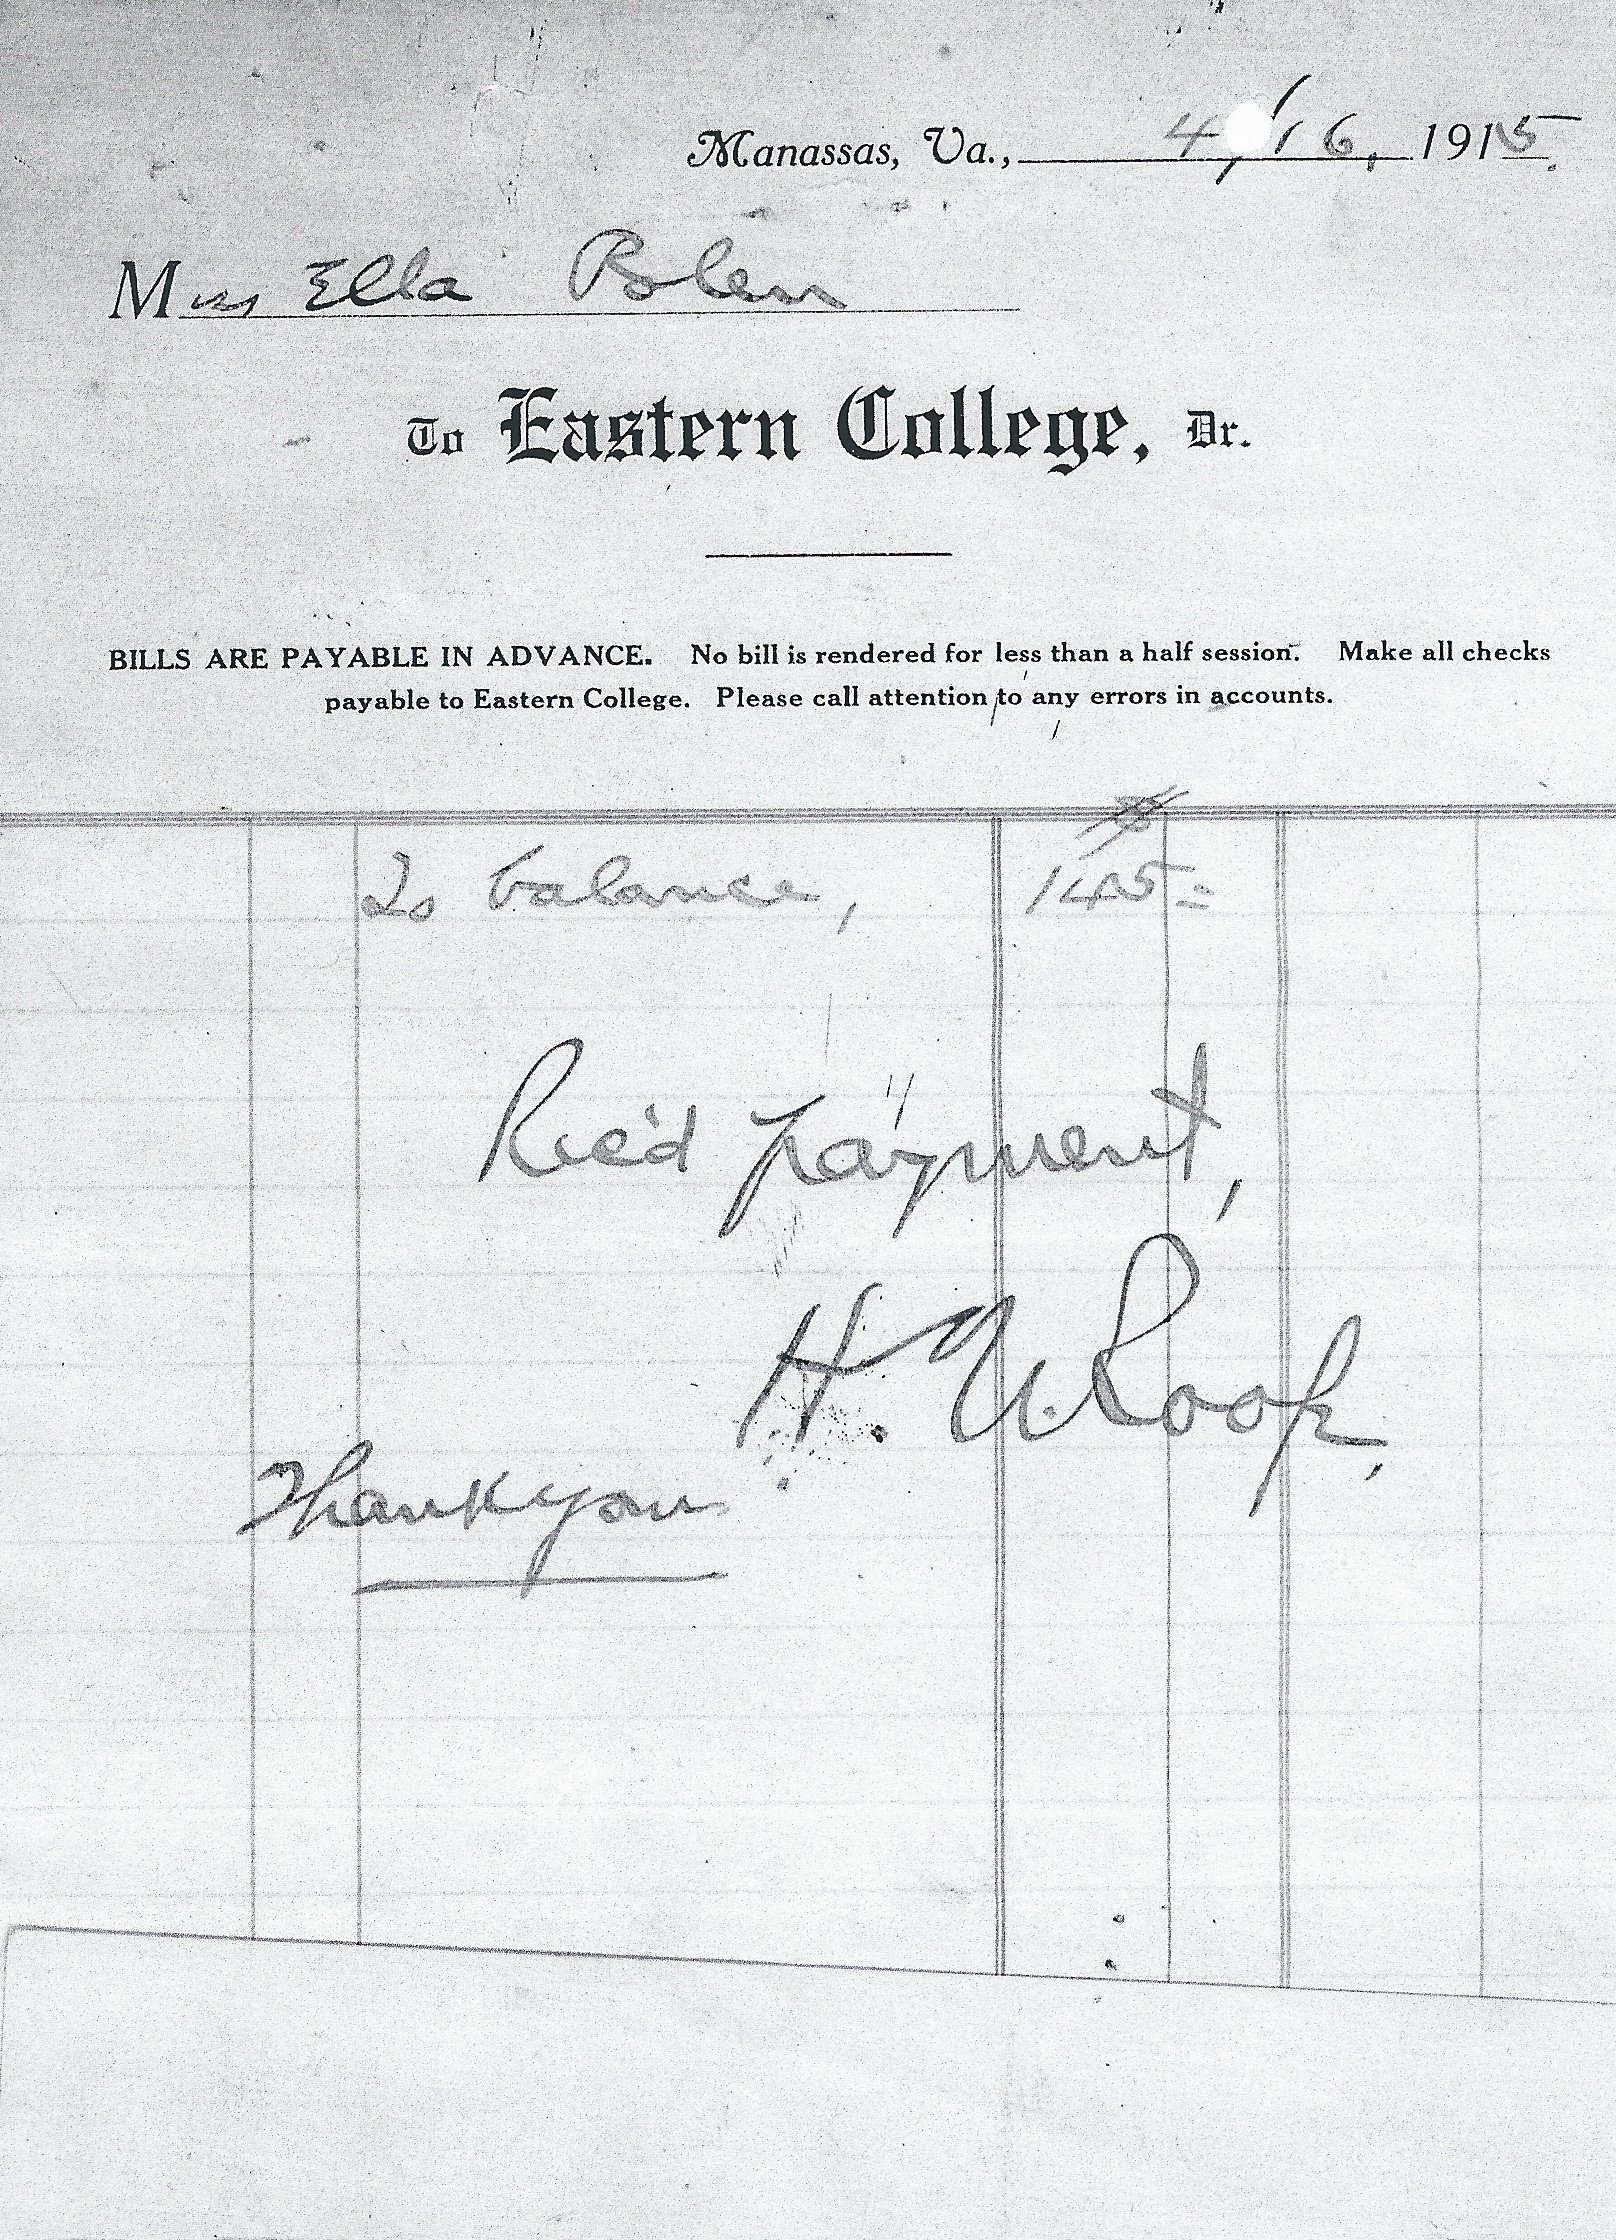 Manassas, Va., 4/16, 1915.
Miss Ella Polen
To Eastern College, Dr.
BILLS ARE PAYABLE IN ADVANCE. No bill is rendered for less than a half session. Make all checks
payable to Eastern College. Please call attention to any errors in accounts.
To balance,
Rec'd payment,
H. U. Roop,
Thank you